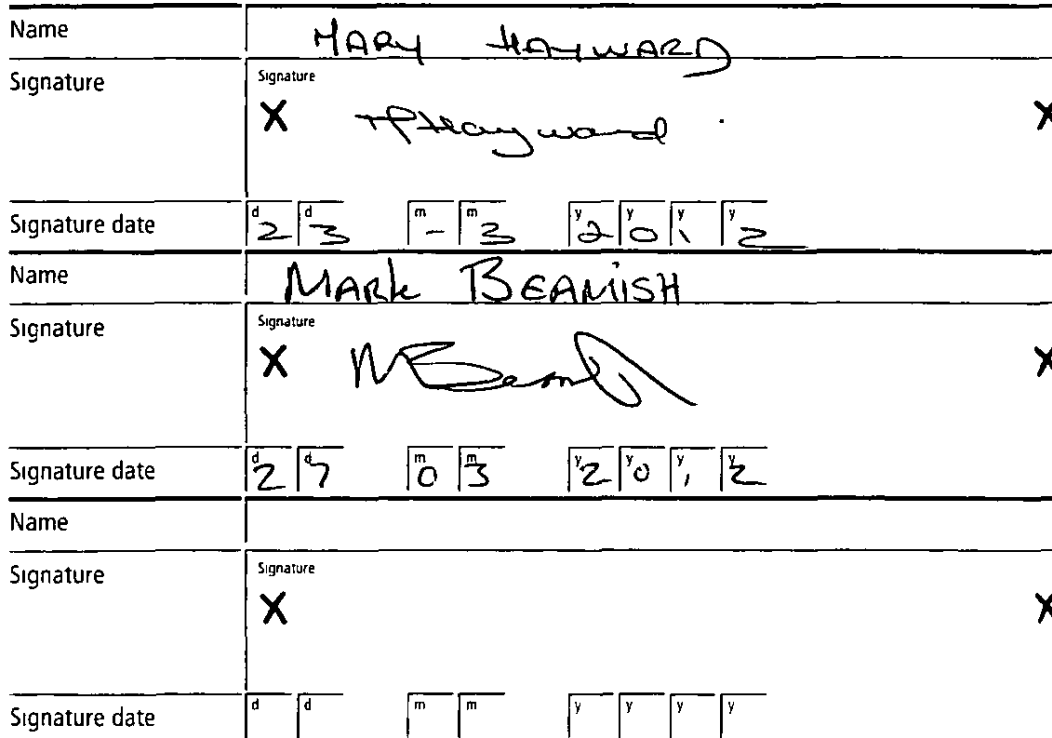 Name MARY HAYWARD
Signature Signature
X X
Hayward
Signature date d d m m y y y y
2 3 - 3 2 0 1 2
Name MARK BEAMISH
Signature Signature
X X
MBeam
Signature date d d m m y y y y
2 7 0 3 2 0 1 2
Name
Signature Signature
X X
Signature date d d m m y y y y